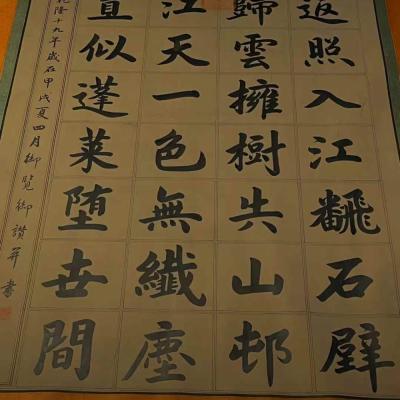 返照入江翻石壁
歸雲擁樹失山邨
江天一色無纖塵
直似蓬萊墮世間
乾隆十九年歲在甲戌夏四月御覽御讚并書